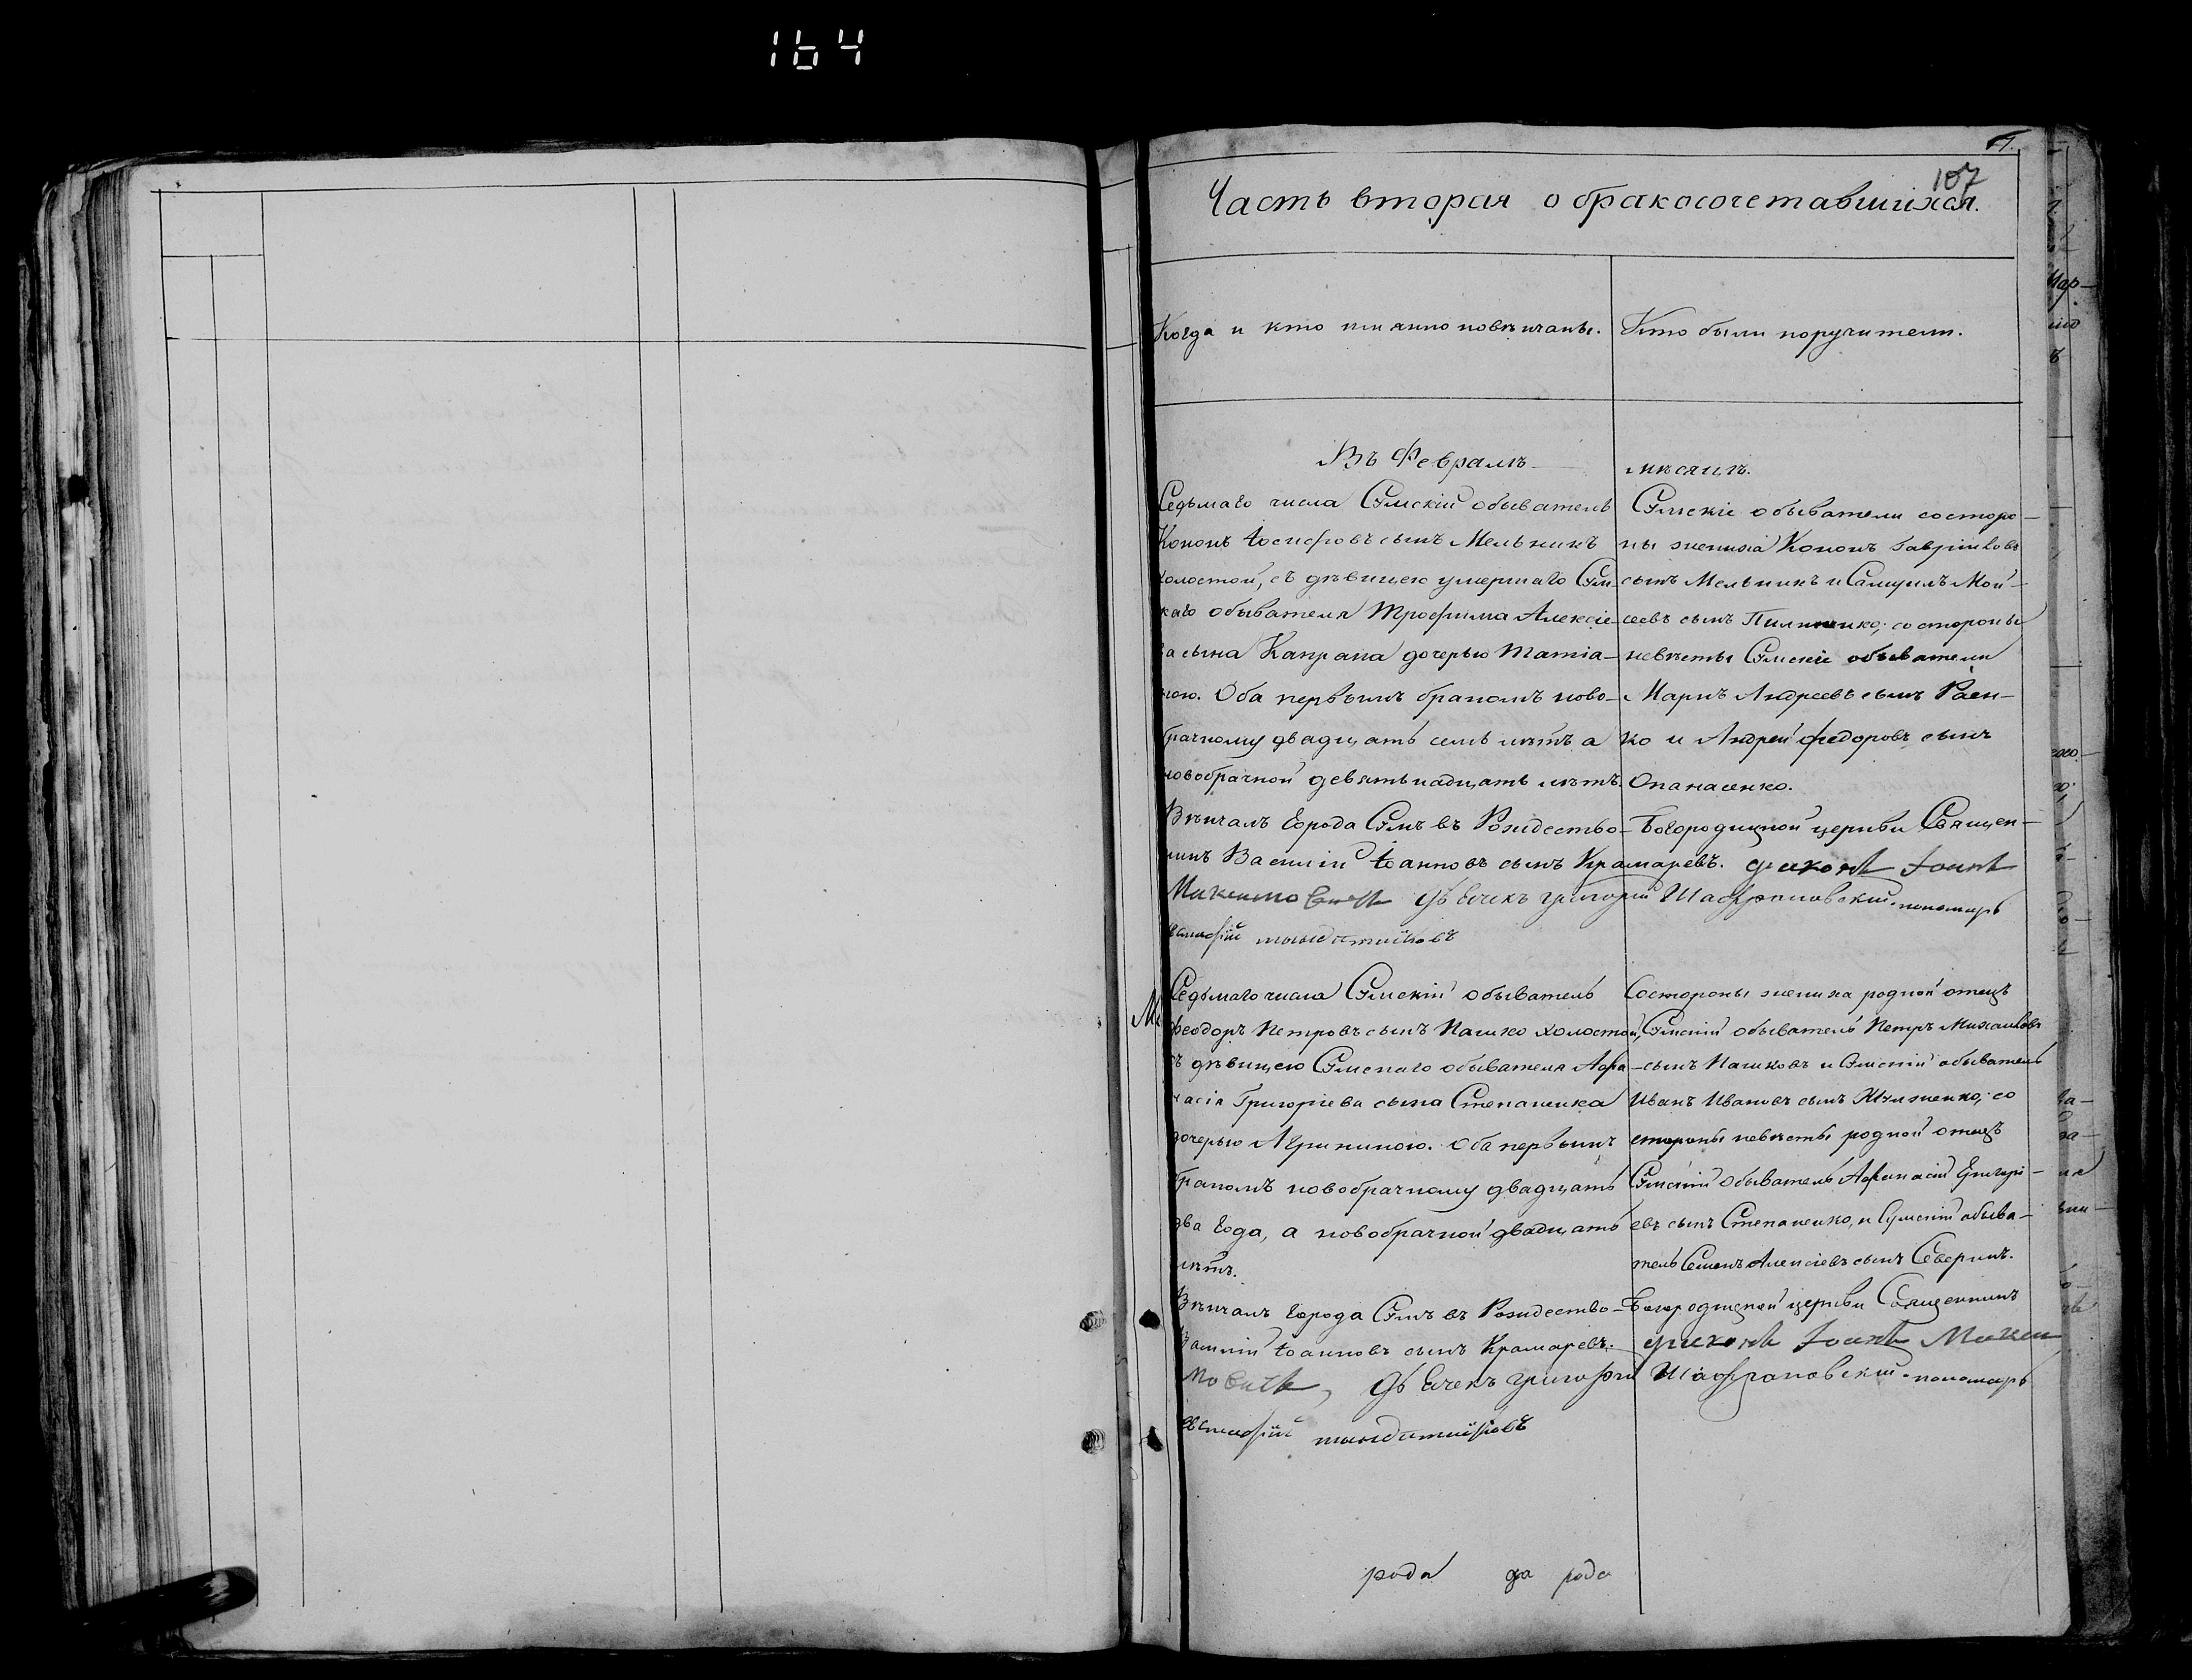 164
107
Часть вторая о бракосочетавшихся.
Когда и кто имянно повѣнчаны.
Кто были поручители.
Въ Февралѣ
мѣсяцѣ.
Седьмаго числа Сумскій обыватель
Кононъ Іосифовъ сынъ Мельникъ
холостой, съ дѣвицею умершаго Сум-
каго обывателя Трофима Алексіе-
ва сына Капрана дочерью Татіа-
ною. Оба первымъ бракомъ ново-
брачному двадцать семь лѣтъ а
новобрачной девятьнадцать лѣтъ.
Сумскіе обыватели состоро-
ны жениха Кононъ Гавріиловъ
сынъ Мельникъ и Самуилъ Мой-
сеевъ сынъ со стороны
невѣсты Сумскіе обыватели
Маркъ Андреевъ сынъ Раен-
ко и Андрей Федоровъ сынъ
Опанасенко.
Вѣнчалъ города Сумъ въ Рождество-Богородицкой церкви Священ-
никъ Василій Іоанновъ сынъ Крамаревъ. діаконъ Іоаннъ
Максимовичъ дьячекъ Григорій Шафрановскій пономарь
Седьмаго числа Сумскій обыватель
Феодоръ Петровъ сынъ Пашко холостой,
съ дѣвицею Сумскаго обывателя Афа-
насія Григоріева сына Степаненка
дочерью Агрипиною. Оба первымъ
бракомъ новобрачному двадцать
два года, а новобрачной двадцать
лѣтъ.
Состороны жениха родной отецъ
Сумскій обыватель Петръ Михаиловъ
сынъ Пашковъ и Сумскій обыватель
Иванъ Ивановъ сынъ со
стороны невѣсты родной отецъ
Сумскій обыватель Афанасій Григорі-
евъ сынъ Степаненко, и Сумскій обыва-
тель Семенъ Алексіевъ сынъ Северинъ.
Вѣнчалъ города Сумъ въ Рождество-Богородицкой церкви Священникъ
Василій Іоанновъ сынъ Крамаревъ. діаконъ Іоаннъ Макси
мовичъ, дьячекъ Григорій Шафрановскій пономарь
рода да рода